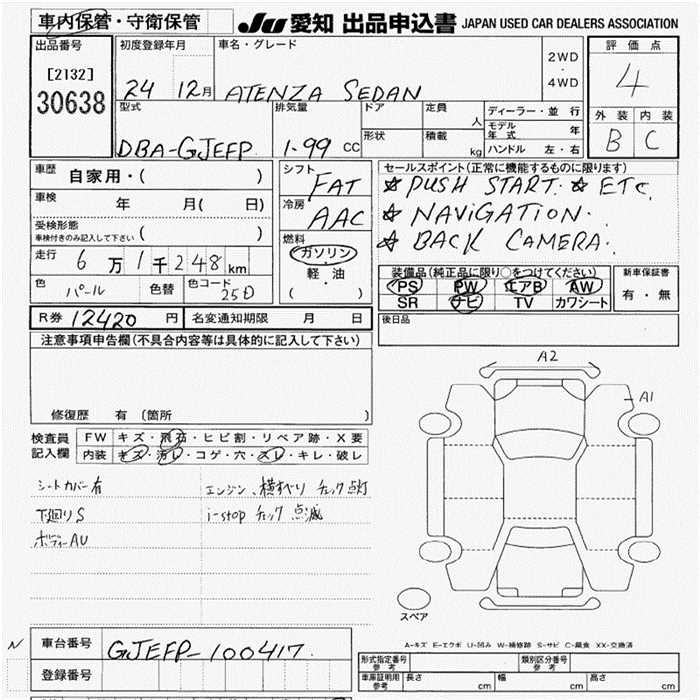 車内保管・守衛保管
JU 愛知 出品申込書 JAPAN USED CAR DEALERS ASSOCIATION
出品番号 初度登録年月 車名・グレード 評価点
[2132] 2WD
30638 24 12月 ATENZA SEDAN ・ 4
4WD
外装 内装
型式 排気量 ドア 定員 人 ディーラー・並行
モデル年式 年
DBA-GJEFP 1.99 CC 形状 積載 kg ハンドル 左・右 B C
車歴 自家用・( ) シフト FAT セールスポイント(正常に機能するものに限ります)
☆ PUSH START. ☆ ETC
車検 年 月( 日) 冷房 AAC ☆ NAVIGATION.
受検形態
車検付きのみ記入して下さい( ) ☆ BACK CAMERA.
走行 6万1千248km 燃料 ガソリン
軽・油
( )
装備品(純正品に限り○をつけてください) 新車保証書
色 パール 色替 色コード 25D PS PW エアB AW 有・無
SR ナビ TV カワシート
R券 12420円 名変通知期限 月 日 後日品
注意事項申告欄(不具合内容等は具体的に記入して下さい)
A2
A1
修復歴 有 (箇所 )
検査員 FW キズ・飛石・ヒビ割・リペア跡・X要
記入欄 内装 キズ・汚レ・コゲ・穴・スレ・キレ・破レ
シートカバー有 エンジン、横すべり チェック点灯
下廻りS i-stop チェック 点滅
ボディーAU
スペア
A-キズ E-エクボ U-凹み W-補修跡 S-サビ C-腐食 XX-交換済
N 車台番号 GJEFP-100417.
登録番号
形式指定番号 参考 類別区分番号 参考
車庫証明用 参考 長さ cm 幅 cm 高さ cm